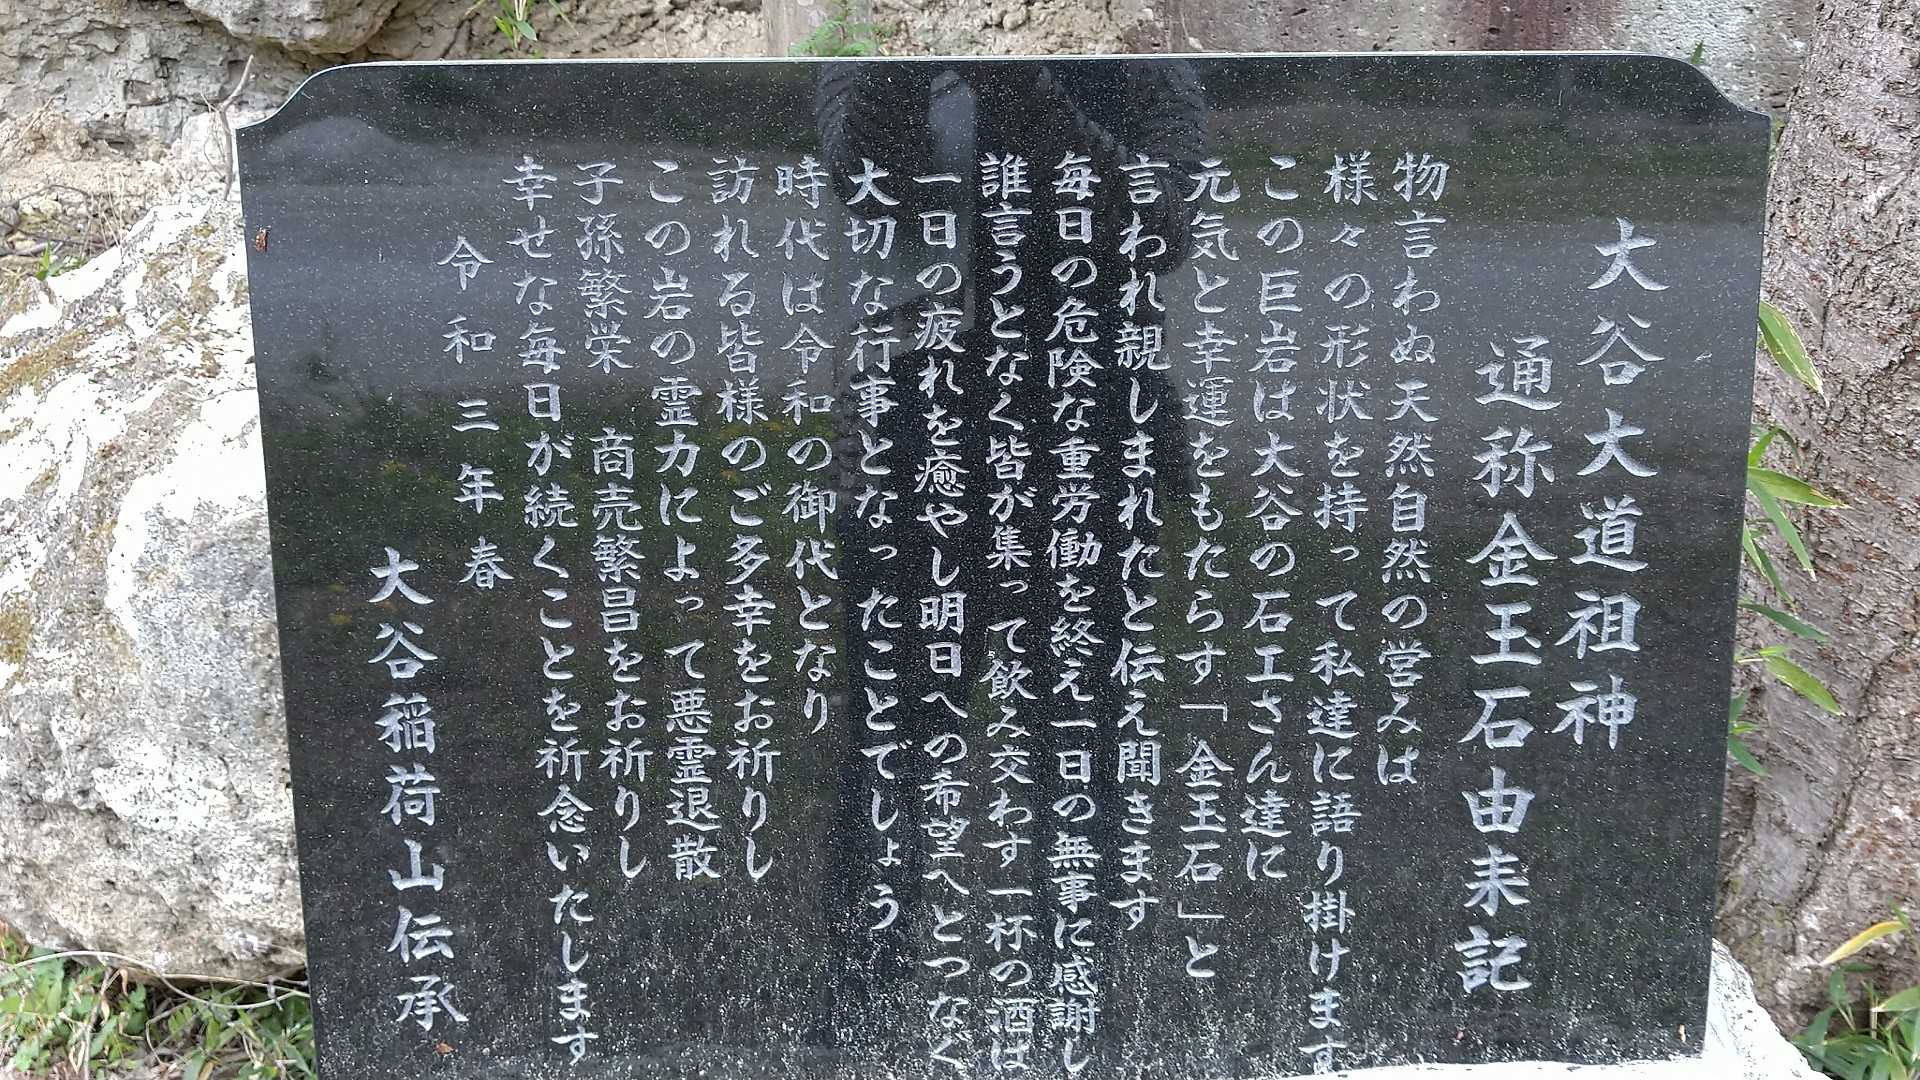 大谷大道祖神
通称金玉石由来記
物言わぬ天然自然の営みは
様々の形状を持って私達に語り掛けます
この巨岩は大谷の石工さん達に
元気と幸運をもたらす「金玉石」と
言われ親しまれたと伝え聞きます
毎日の危険な重労働を終え一日の無事に感謝し
誰言うとなく皆が集って飲み交わす一杯の酒は
一日の疲れを癒やし明日への希望へとつなぐ
大切な行事となったことでしょう
時代は令和の御代となり
訪れる皆様のご多幸をお祈りし
この岩の霊力によって悪霊退散
子孫繁栄　商売繁昌をお祈りし
幸せな毎日が続くことを祈念いたします
令和三年春
大谷稲荷山伝承